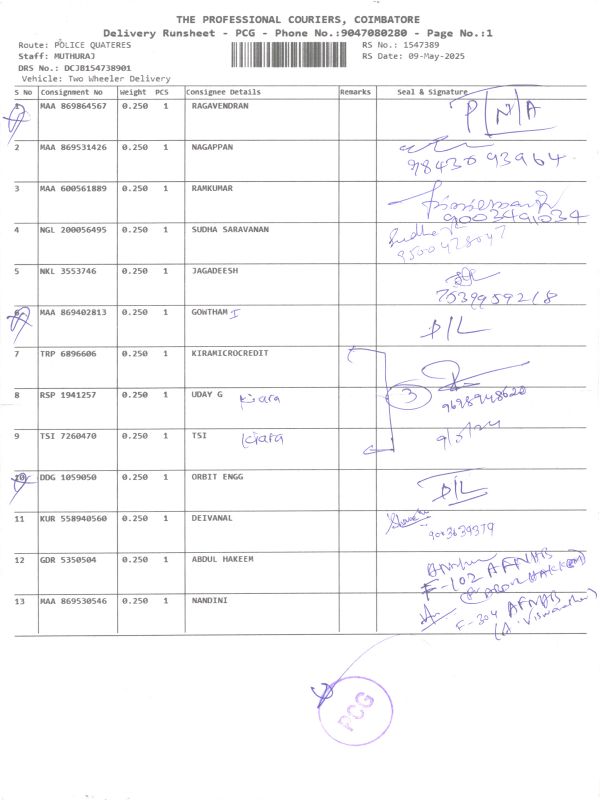 THE PROFESSIONAL COURIERS, COIMBATORE
Delivery Runsheet - PCG - Phone No.:9047080280 - Page No.:1
Route: POLICE QUATERES RS No.: 1547389
Staff: MUTHURAJ RS Date: 09-May-2025
DRS No.: DCJB154738901
Vehicle: Two Wheeler Delivery
S No Consignment No Weight PCS Consignee Details Remarks Seal & Signature
1 MAA 869864567 0.250 1 RAGAVENDRAN P/N/A
2 MAA 869531426 0.250 1 NAGAPPAN
9843093964
3 MAA 600561889 0.250 1 RAMKUMAR
9003491034
4 NGL 200056495 0.250 1 SUDHA SARAVANAN Sudha
9500478047
5 NKL 3553746 0.250 1 JAGADEESH
7539959218
6 MAA 869402813 0.250 1 GOWTHAM I D/L
7 TRP 6896606 0.250 1 KIRAMICROCREDIT
8 RSP 1941257 0.250 1 UDAY G Kiara 3
9698948620
9 TSI 7260470 0.250 1 TSI Kiara
10 DDG 1059050 0.250 1 ORBIT ENGG D/L
11 KUR 558940560 0.250 1 DEIVANAL
9003639379
12 GDR 5350504 0.250 1 ABDUL HAKEEM
F-102 AFNAB
13 MAA 869530546 0.250 1 NANDINI
F-304 AFNAB
(A. Viswanathan)
PCG